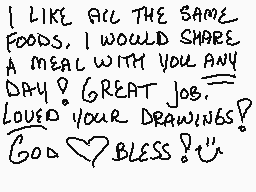 I LIKE ALL THE SAME
FOODS. I WOULD SHARE
A MEAL WITH YOU ANY
DAY! GREAT JOB.
LOVED YOUR DRAWINGS!
GOD ♡ BLESS! :)